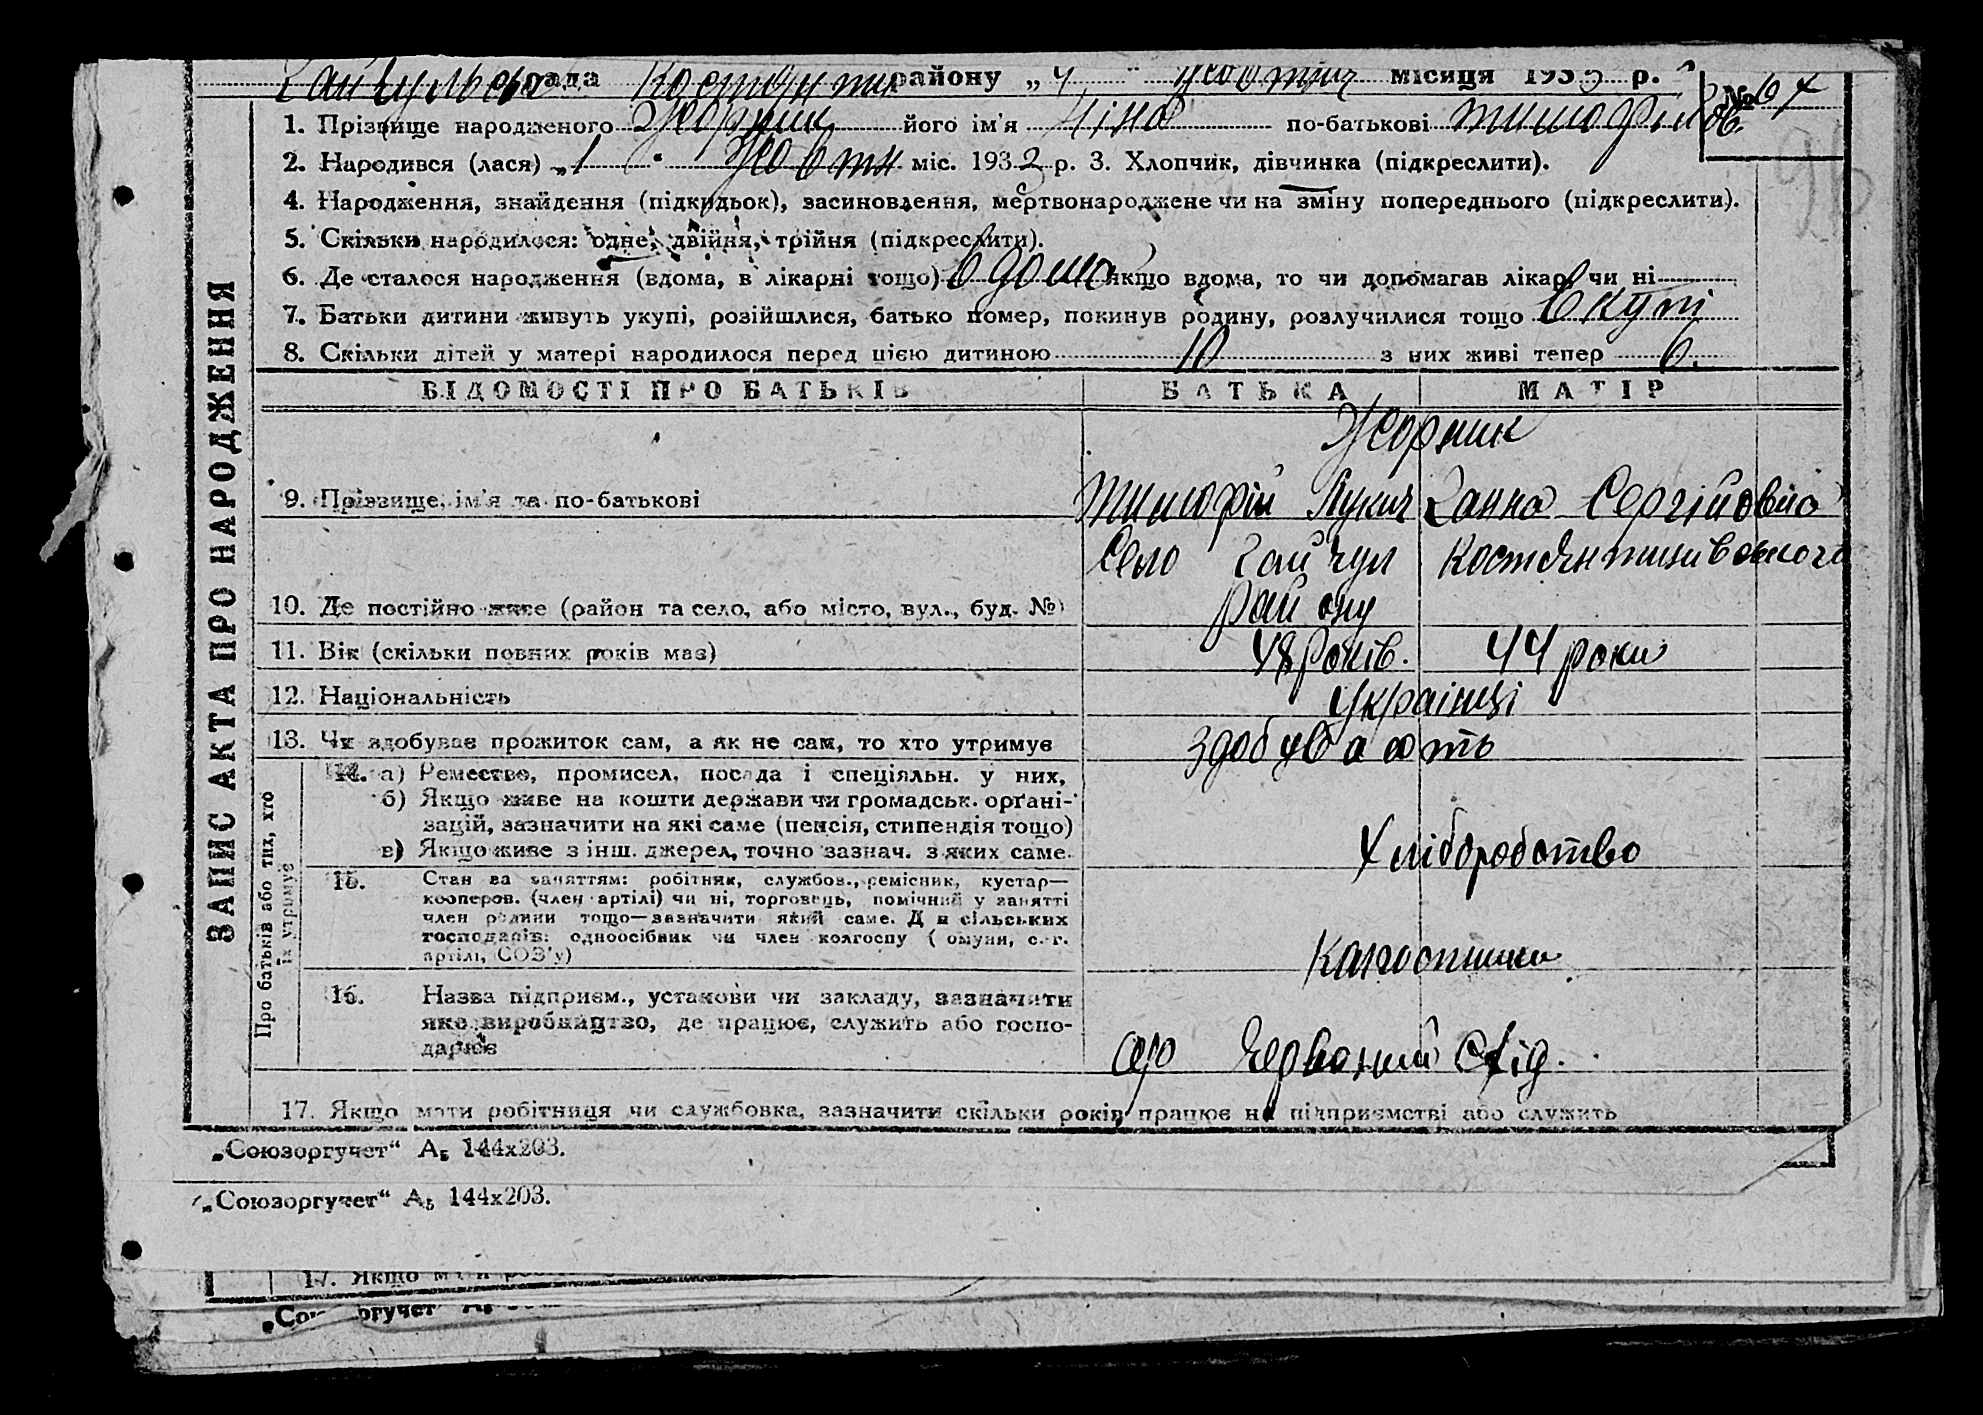 Гайчульська рада Костянтин району „4" жовтня місяця 1933 р. № 64
1. Прізвище народженого Жорник його ім'я Ніна по-батькові Тимофіїв.
2. Народився (лася) „1" жовтн міс. 1932 р. 3. Хлопчик, дівчинка (підкреслити).
4. Народження, знайдення (підкидьок), засиновлення, мертвонароджене чи на зміну попереднього (підкреслити).
5. Скільки народилося: одне, двійня, трійня (підкреслити).
6. Де сталося народження (вдома, в лікарні тощо) вдома якщо вдома, то чи допомагав лікар чи ні
7. Батьки дитини живуть укупі, розійшлися, батько помер, покинув родину, розлучилися тощо вкупі
8. Скільки дітей у матері народилося перед цією дитиною 10 з них живі тепер 6.
ЗАПИС АКТА ПРО НАРОДЖЕННЯ
ВІДОМОСТІ ПРО БАТЬКІВ БАТЬКА МАТІР
Жорник
9. Прізвище, ім'я та по-батькові Тимофій Лукич Ганна Сергійовна
Село Гайчул Костянтинивського
10. Де постійно живе (район та село, або місто, вул., буд. №) району
11. Вік (скільки повних років має) 48 років. 44 роки
12. Національність українці
13. Чи здобуває прожиток сам, а як не сам, то хто утримує здобувають
Про батьків або тих, хто їх утримує
14. а) Ремество, промисел, посада і спеціяльн. у них,
б) Якщо живе на кошти держави чи громадськ. органі-
зацій, зазначити на які саме (пенсія, стипендія тощо)
в) Якщо живе з інш. джерел, точно зазнач. з яких саме. Хліборобство
15. Стан за заняттям: робітник, службов., ремісник, кустар—
кооперов. (член артілі) чи ні, торговець, помічний у занятті
член родини тощо—зазначити який саме. Д я сільських
господарів: одноосібник чи член колгоспу ( омуни, с.-г.
артілі, СОЗ'у) Калгоспники
16. Назва підприєм., установи чи закладу, зазначити
яке виробництво, де працює, служить або госпо-
дарює Червоний Схід.
17. Якщо мати робітниця чи службовка, зазначити скільки років працює на підприємстві або служить
„Союзоргучет" А₅ 144х203.
„Союзоргучет" А₅ 144х203.
17. Якщо мати
„Союзоргучет" А₅